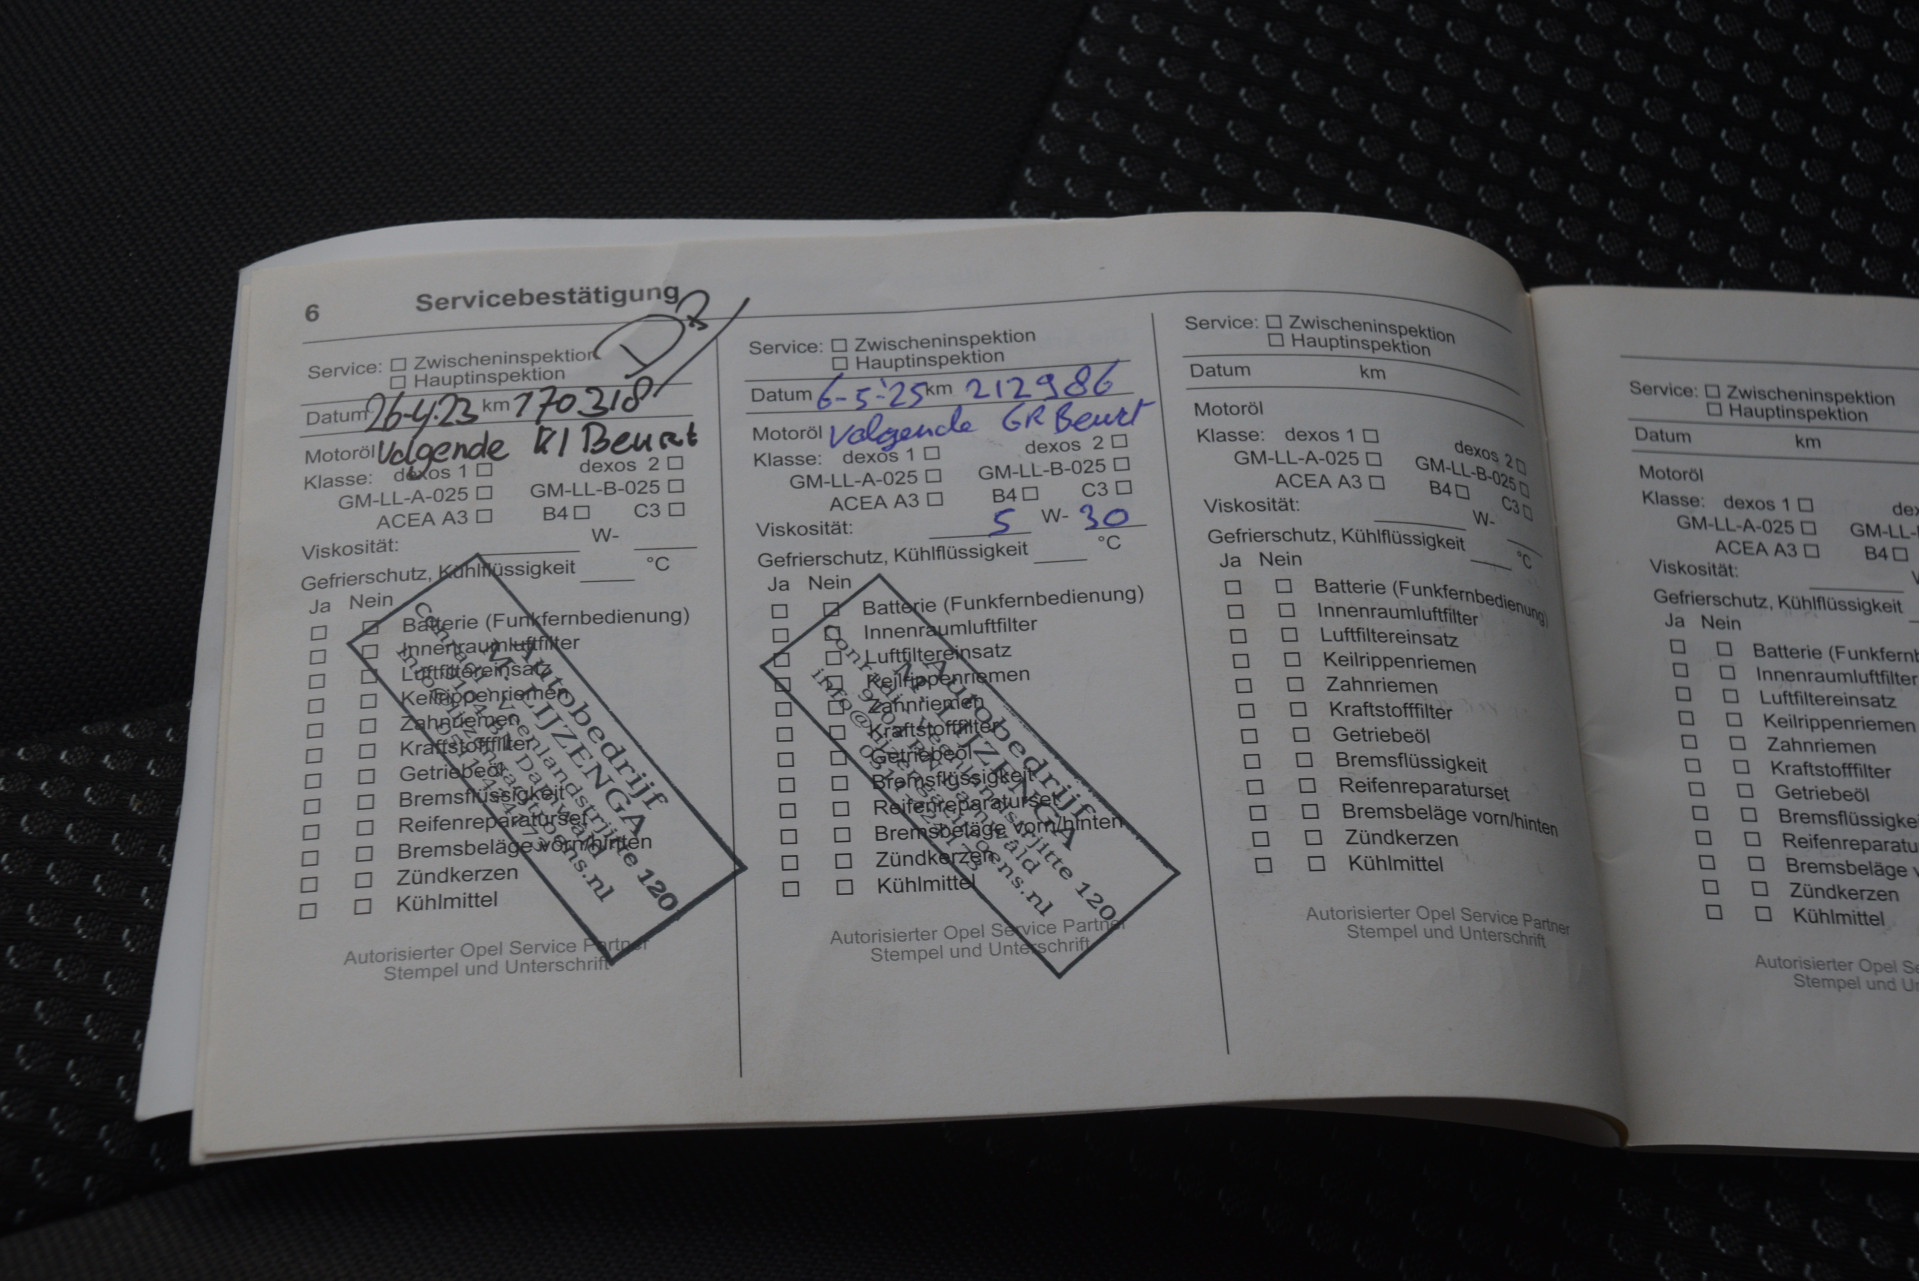 6 Servicebestätigung
Service: Zwischeninspektion
Hauptinspektion
Datum 26-4-23 km 170318
Motoröl Volgende Kl Beurt
Klasse: dexos 1 dexos 2
GM-LL-A-025 GM-LL-B-025
ACEA A3 B4 C3
Viskosität: W-
Gefrierschutz, Kühlflüssigkeit °C
Ja Nein
Batterie (Funkfernbedienung)
Innenraumluftfilter
Luftfiltereinsatz
Keilrippenriemen
Zahnriemen
Kraftstofffilter
Getriebeöl
Bremsflüssigkeit
Reifenreparaturset
Bremsbeläge vorn/hinten
Zündkerzen
Kühlmittel
Autobedrijf
M. LIJZENGA
Autorisierter Opel Service Partner
Stempel und Unterschrift
Service: Zwischeninspektion
Hauptinspektion
Datum 6-5-'25 km 212986
Motoröl Volgende GR Beurt
Klasse: dexos 1 dexos 2
GM-LL-A-025 GM-LL-B-025
ACEA A3 B4 C3
Viskosität: 5 W- 30
Gefrierschutz, Kühlflüssigkeit °C
Ja Nein
Batterie (Funkfernbedienung)
Innenraumluftfilter
Luftfiltereinsatz
Keilrippenriemen
Zahnriemen
Kraftstofffilter
Getriebeöl
Bremsflüssigkeit
Reifenreparaturset
Bremsbeläge vorn/hinten
Zündkerzen
Kühlmittel
Autobedrijf
M. LIJZENGA
Autorisierter Opel Service Partner
Stempel und Unterschrift
Service: Zwischeninspektion
Hauptinspektion
Datum km
Motoröl
Klasse: dexos 1 dexos 2
GM-LL-A-025 GM-LL-B-025
ACEA A3 B4 C3
Viskosität: W-
Gefrierschutz, Kühlflüssigkeit °C
Ja Nein
Batterie (Funkfernbedienung)
Innenraumluftfilter
Luftfiltereinsatz
Keilrippenriemen
Zahnriemen
Kraftstofffilter
Getriebeöl
Bremsflüssigkeit
Reifenreparaturset
Bremsbeläge vorn/hinten
Zündkerzen
Kühlmittel
Autorisierter Opel Service Partner
Stempel und Unterschrift
Service: Zwischeninspektion
Hauptinspektion
Datum km
Motoröl
Klasse: dexos 1
GM-LL-A-025 GM-LL-
ACEA A3 B4
Viskosität:
Gefrierschutz, Kühlflüssigkeit
Ja Nein
Batterie (Funkfernb
Innenraumluftfilter
Luftfiltereinsatz
Keilrippenriemen
Zahnriemen
Kraftstofffilter
Getriebeöl
Bremsflüssigke
Reifenreparatu
Bremsbeläge v
Zündkerzen
Kühlmittel
Autorisierter Opel Se
Stempel und Un